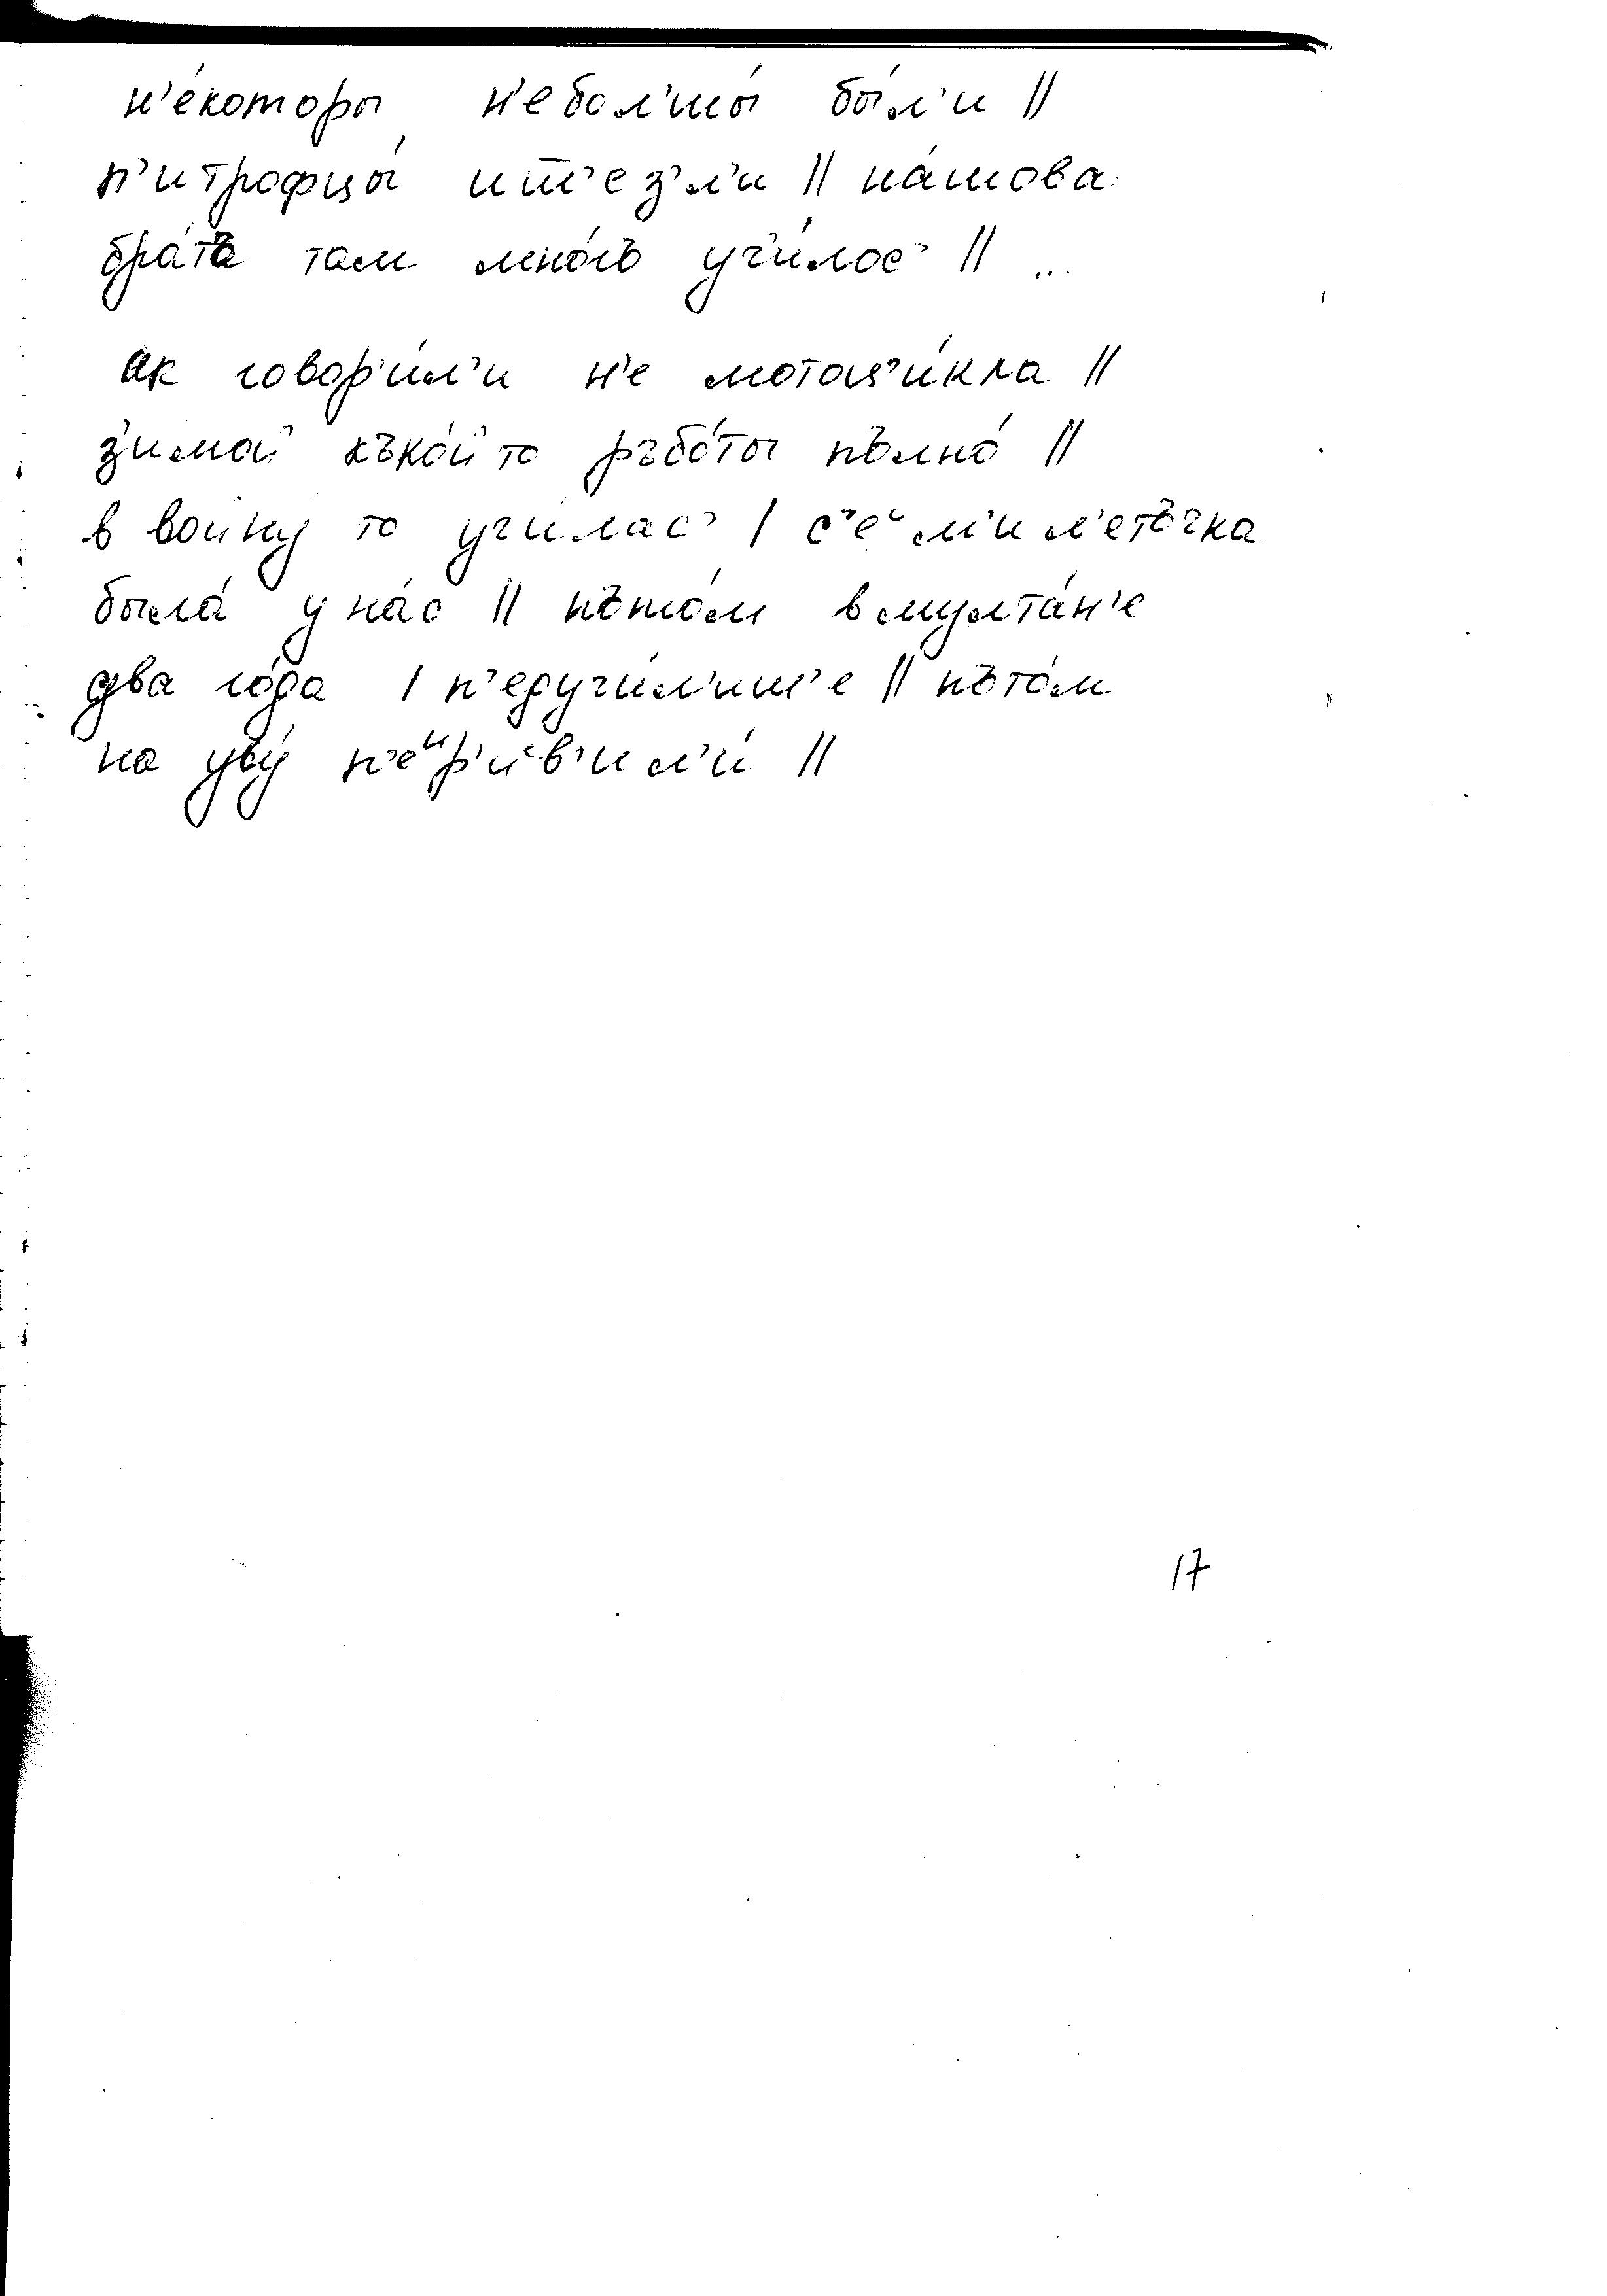 н'е́которы н'ебол'шы́ бы́л'и ||
п'итрофцы́ ишш'е з'л'и || на́шова
бра́тъ там мно́гъ уч'и́лос' || ...
ак говор'и́л'и н'е мотоц'и́кла ||
з'имой къко́й то ръбо́ты пълно́ ||
в войну то училас' | с'еᶦм'ил'етъчка
была́ у на́с || пъто́м в мулта́н'е
два го́да | п'едучи́л'ишш'е || пъто́м
на уву́ п'еᶦр'ив'ил'и́ ||
17